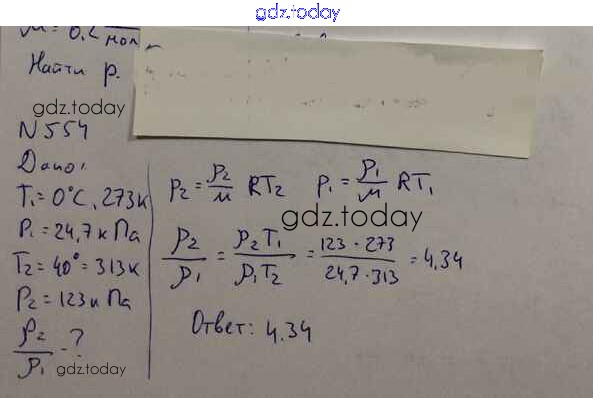 gdz.today
Найти p.
gdz.today
N 554
Дано:
T₁=0°C, 273к
P₁=24,7кПа
T₂=40°=313к
P₂=123кПа
ρ₂/ρ₁-?
gdz.today
p₂=ρ₂/м RT₂ p₁=ρ₁/м RT₁
gdz.today
ρ₂/ρ₁=p₂T₁/p₁T₂=123·273/24,7·313=4,34
Ответ: 4,34